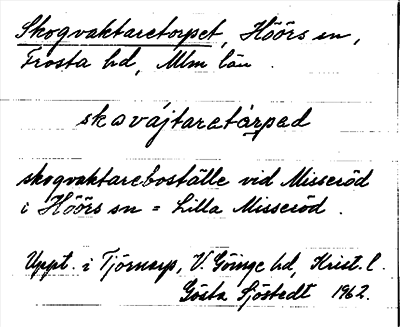 Skogvaktaretorpet, Höörs sn,
Frosta hd, Mlm län.
skωvájtaretàrped
skogvaktareboställe vid Misseröd
i Höörs sn = Lilla Misseröd.
Uppt. i Tjörnarp, V. Göinge hd, Krist. l.
Gösta Sjöstedt 1962.